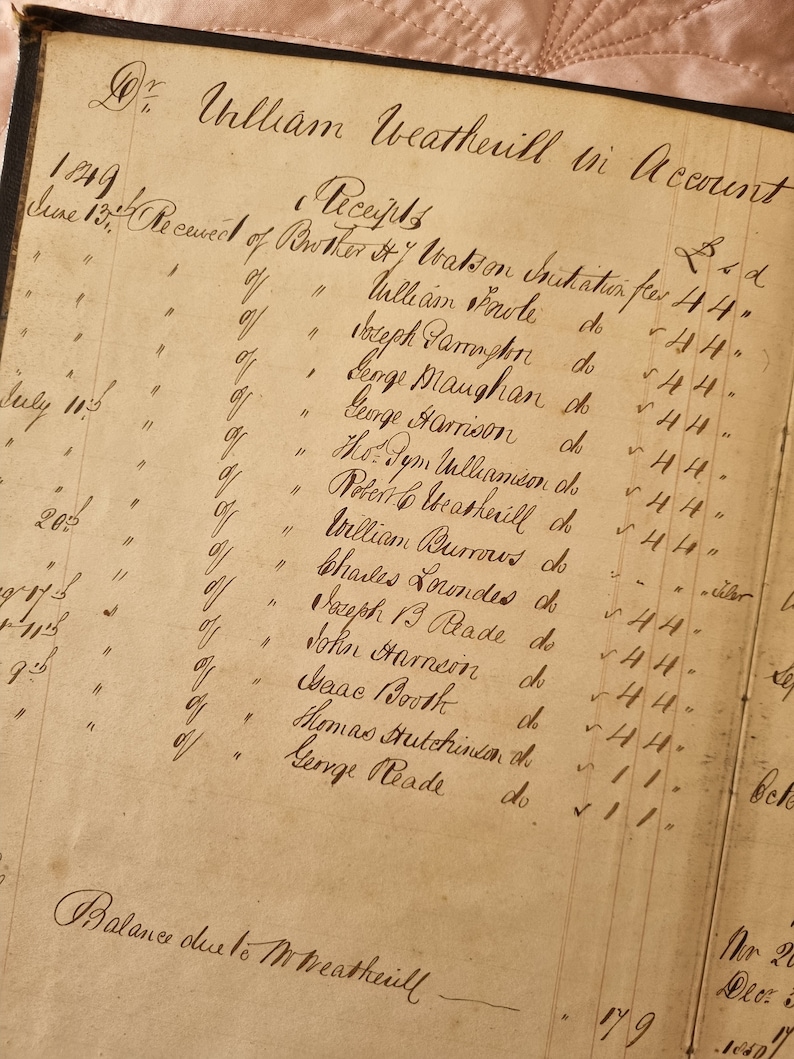 Dr William Weatherill in Account
1849
Receipts
£ s d
June 13th Received of Brother H J Watson Initiation fee ✓ 4 4 "
" " " of " William Fowle do ✓ 4 4 "
" " " of " Joseph Parrington do ✓ 4 4 "
" " " of " George Maughan do ✓ 4 4 "
" " " of " George Harrison do ✓ 4 4 "
July 11th " of " Thos Pym Williamson do ✓ 4 4 "
" " " of " Robert C Weatherill do ✓ 4 4 "
" " " of " William Burrows do " " "
20th " of " Charles Lowndes do ✓ 4 4 "
" " of " Joseph B Reade do ✓ 4 4 "
17th " of " John Harrison do ✓ 4 4 "
11th " of " Isaac Booth do ✓ 4 4 "
9th " of " Thomas Hutchinson do ✓ 1 1 "
" " of " George Reade do ✓ 1 1 "
Balance due to W Weatherill " 17 9
Sep
Octo
Nov 20
Decr 3
1850